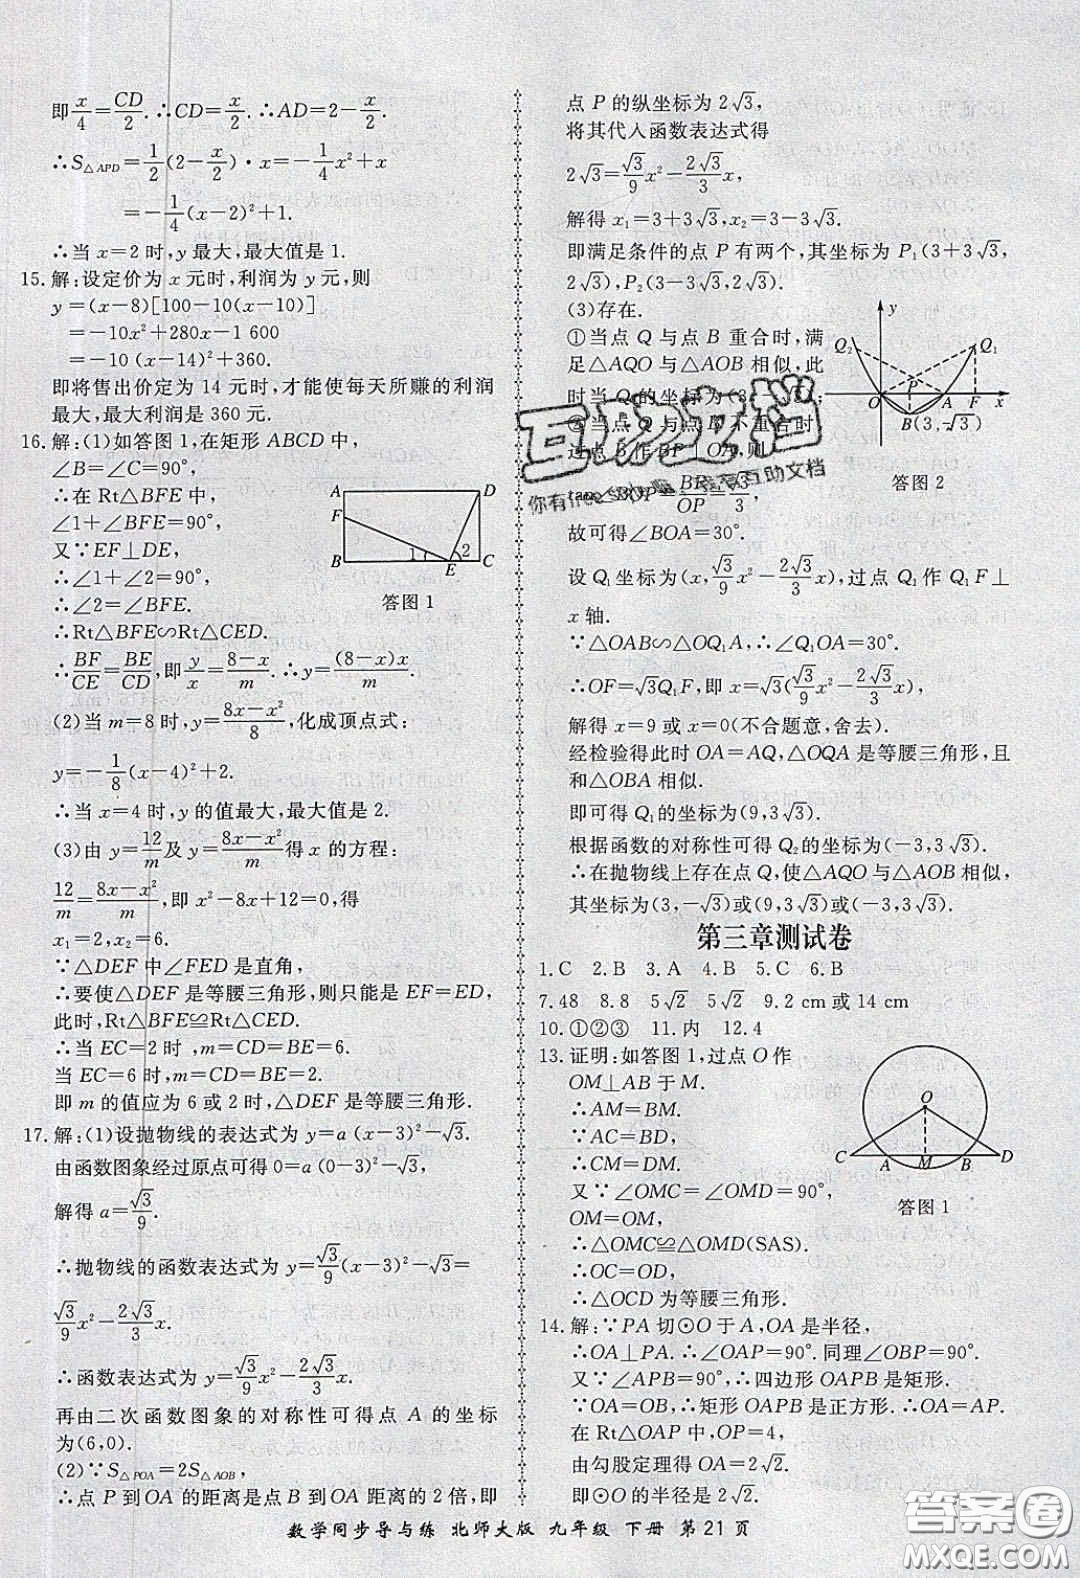 即x/4=CD/2.∴CD=x/2.∴AD=2-x/2.
∴S△APD=1/2(2-x/2)·x=-1/4x²+x
=-1/4(x-2)²+1.
∴当x=2时,y最大,最大值是1.
15.解:设定价为x元时,利润为y元,则
y=(x-8)[100-10(x-10)]
=-10x²+280x-1 600
=-10(x-14)²+360.
即将售出价定为14元时,才能使每天所赚的利润
最大,最大利润是360元.
16.解:(1)如答图1,在矩形ABCD中,
∠B=∠C=90°,
∴在Rt△BFE中,
∠1+∠BFE=90°,
又∵EF⊥DE,
∴∠1+∠2=90°,
∴∠2=∠BFE.
∴Rt△BFE∽Rt△CED.
A D
F
B 1 E 2 C
答图1
∴BF/CE=BE/CD,即y/x=(8-x)/m.∴y=(8-x)x/m.
(2)当m=8时,y=(8x-x²)/8,化成顶点式:
y=-1/8(x-4)²+2.
∴当x=4时,y的值最大,最大值是2.
(3)由y=12/m及y=(8x-x²)/m得x的方程:
12/m=(8x-x²)/m,即x²-8x+12=0,得
x₁=2,x₂=6.
∵△DEF中∠FED是直角,
∴要使△DEF是等腰三角形,则只能是EF=ED,
此时,Rt△BFE≌Rt△CED.
∴当EC=2时,m=CD=BE=6.
当EC=6时,m=CD=BE=2.
即m的值应为6或2时,△DEF是等腰三角形.
17.解:(1)设抛物线的表达式为y=a(x-3)²-√3.
由函数图象经过原点可得0=a(0-3)²-√3,
解得a=√3/9.
∴抛物线的函数表达式为y=√3/9(x-3)²-√3=
√3/9x²-2√3/3x.
∴函数表达式为y=√3/9x²-2√3/3x.
再由二次函数图象的对称性可得点A的坐标
为(6,0).
(2)∵S△POA=2S△AOB,
∴点P到OA的距离是点B到OA的2倍,即
点P的纵坐标为2√3,
将其代入函数表达式得
2√3=√3/9x²-2√3/3x,
解得x₁=3+3√3,x₂=3-3√3.
即满足条件的点P有两个,其坐标为P₁(3+3√3,
2√3),P₂(3-3√3,2√3).
(3)存在.
①当点Q与点B重合时,满
足△AQO与△AOB相似,此
时当Q的坐标为(3,-√3);
②当点Q与点B不重合时,
过点B作BP⊥OA,则
tan∠BOP=BP/OP=√3/3,
故可得∠BOA=30°.
y
Q₂ Q₁
P
O A F x
B(3,-√3)
答图2
互助文档
设Q₁坐标为(x,√3/9x²-2√3/3x),过点Q₁作Q₁F⊥
x轴.
∵△OAB∽△OQ₁A,∴∠Q₁OA=30°.
∴OF=√3Q₁F,即x=√3(√3/9x²-2√3/3x),
解得x=9或x=0(不合题意,舍去).
经检验得此时OA=AQ,△OQA是等腰三角形,且
和△OBA相似.
即可得Q₁的坐标为(9,3√3).
根据函数的对称性可得Q₂的坐标为(-3,3√3).
∴在抛物线上存在点Q,使△AQO与△AOB相似,
其坐标为(3,-√3)或(9,3√3)或(-3,3√3).
第三章测试卷
1.C 2.B 3.A 4.B 5.C 6.B
7.48 8.8 5√2 5√2 9.2 cm或14 cm
10.①②③ 11.内 12.4
13.证明:如答图1,过点O作
OM⊥AB于M.
∴AM=BM.
∵AC=BD,
∴CM=DM.
又∵∠OMC=∠OMD=90°,
OM=OM,
∴△OMC≌△OMD(SAS).
∴OC=OD,
∴△OCD为等腰三角形.
O
C A M B D
答图1
14.解:∵PA切⊙O于A,OA是半径,
∴OA⊥PA.∴∠OAP=90°.同理∠OBP=90°.
又∵∠APB=90°,∴四边形OAPB是矩形.
∵OA=OB,∴矩形OAPB是正方形.∴OA=AP.
在Rt△OAP中,OP=4,
由勾股定理得OA=2√2.
即⊙O的半径是2√2.
数学同步导与练 北师大版 九年级 下册 第21页
答案圈
MXQE.COM